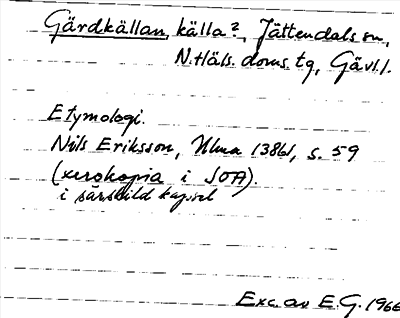 Gärdkällan, källa?, Jättendals sn,
N. Häls. doms. tg, Gävl. l.
Etymologi.
Nils Eriksson, Ulma 13861, s. 59
(xerokopia i SOA).
i särskild kapsel
Exc. av E.G. 1966